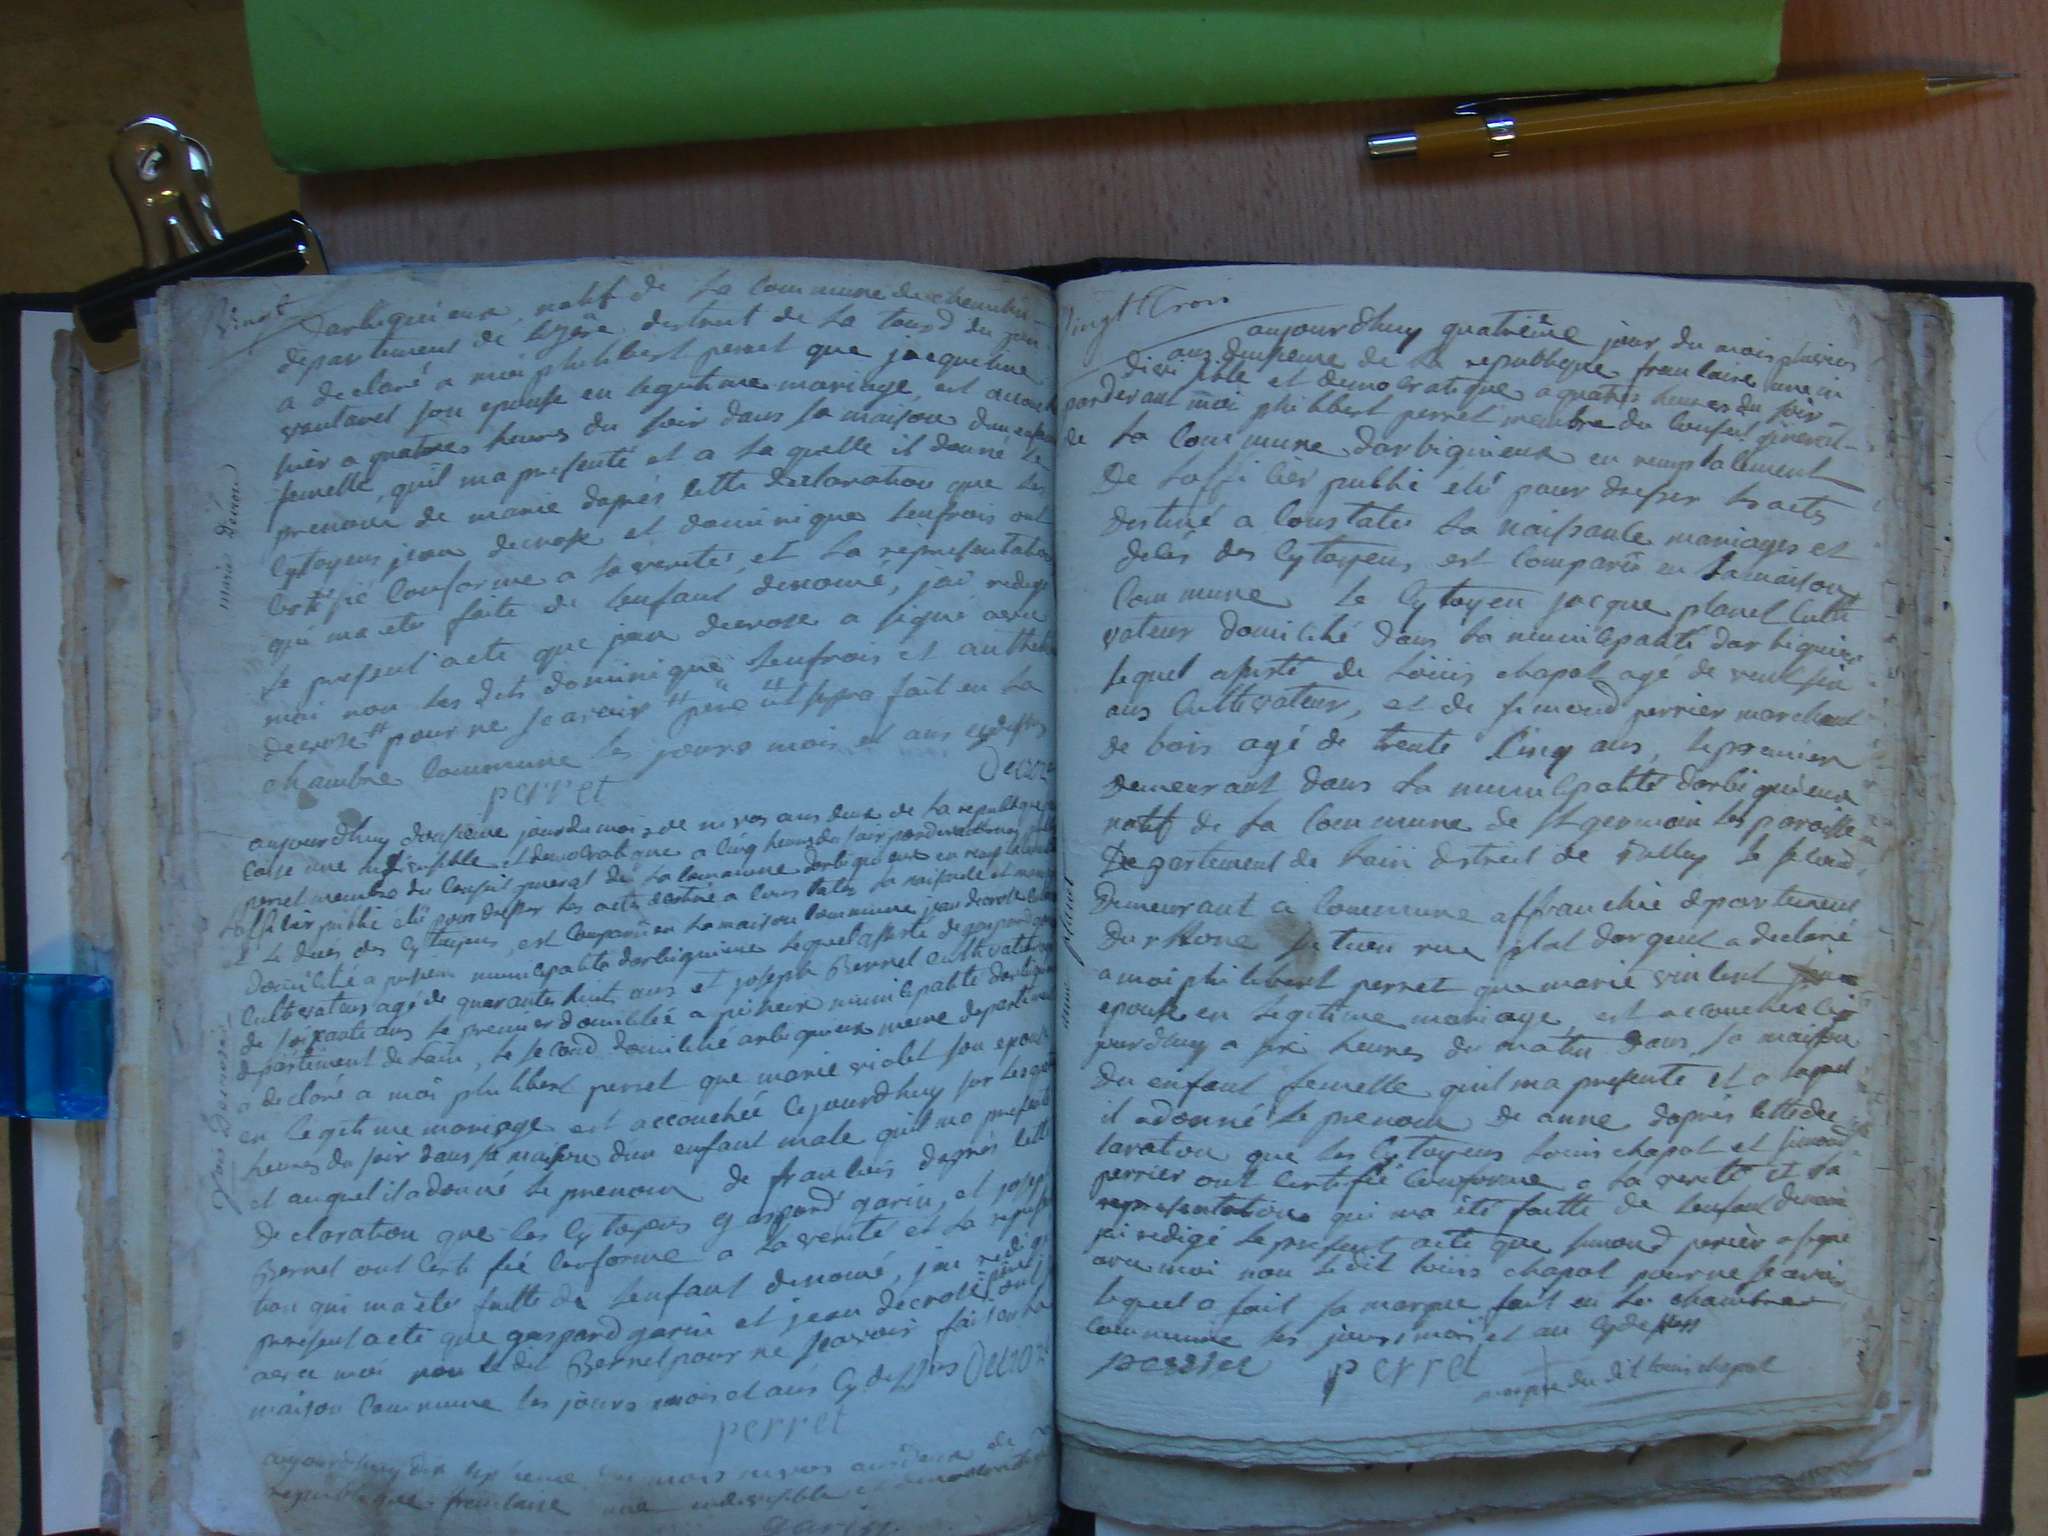 Vingt
darbiquieux, natif de la Commune de
departement de district de la tour du pin
a declaré a moi philibert perret que jacqueline
son epouse en legitime mariage, est accouchée
hier a quatres heures du soir dans sa maison dun enfant
femelle, quil ma presenté et a la quelle il donné le
prenom de marie daprés cette declaration que les
Cytoyens jean decrose et dominique ont
certifié Conforme a la verité, et la representation
qui ma eté faite de lenfant denomé, jai redigé
le present acte que jean decrose a signé avec
moi non les dits dominique et
decrose pour ne scavoir fait en la
chambre Commune les jours mois et ans cydessus
perret
marie
aujourdhuy jour du mois de nivos ans deux de la republique
une indivisible et democratique a cinq heures du soir pardevant moi
perret membre du Conseil general de la Commune darbiquieux en remplacement
de lofficier public elû pour dresser les actes destiné a Constater la naissance et mariages
et le decés des Cytoyens, est Comparu en la maison Commune jean decrose
domicilié a municipalité darbiquieux lequel assisté de gaspard garin
Cultivateur agé de quarante huit ans et joseph Bernet cultivateur
de soixante ans le premier domicilié a municipalité darbiquieux
departement de lain, le second domicilié arbiquieux meme departement
a declaré a moi philibert perret que marie violet son epouse
en legitime mariage est accouchée cejourdhuy sur les quatre
heures du soir dans sa maison dun enfant male quil ma presenté
et auquel il a donné le prenom de francois daprés cette
declaration que les Cytoyens gaspard garin, et joseph
Bernet ont certifié Conforme a la verité et la representa
tion qui ma eté faitte de lenfant denomé, jai redigé
present acte que gaspard garin et jean decrose père ont
avec moi non le dit Bernet pour ne scavoir fait en la
maison Commune les jours mois et ans Cydessus
perret
aujourdhuy dix du mois nivos ans deux de
republique francaise une indivisible et democratique
garin
Vingt Trois
aujourdhuy quatrième jour du mois pluvios
ans deuxieme de la republique francaise une in
divisible et democratique a quatres heures du soir
pardevant moi philibert perret membre du Conseil general
de la Commune darbiquieux en remplacement
De lofficier public elû pour dresser les actes
destiné a Constater la naissance mariages et
decés des Cytoyens, est Comparû en la maison
Commune le Cytoyen jacque planet Culti
vateur domicilié dans la municipalité darbiquieux
lequel assisté de Louis chapot agé de vent six
ans Cultivateur, et de simond perrier marchant
de bois agé de trente Cinq ans, le premier
Demeurant dans la municipalité darbiquieux
natif de la Commune de St germain les paroisse
Departement de lain district de le second
Demeurant a Commune affranchie departement
du rhone rue plat dargent a declaré
a moi philibert perret que marie vincent
epouse en legitime mariage, est accouchée ce
jourdhuy a six heures du matin dans sa maison
du enfant femelle quil ma presenté et a laquel
il adonné le prenom de anne daprés cette dec
laration que les Cytoyens Louis chapot et simond
perrier ont certifié Conforme a la verité et la
representation qui ma été faitte de lenfant denomé
jai redigé le present acte que simond perier a signé
avec moi non le dit louis chapot pour ne scavoir
lequel a fait sa marque fait en la chambre
Commune les jours, mois et an Cydessus
perrier perret marque du dit louis chapot
anne planet